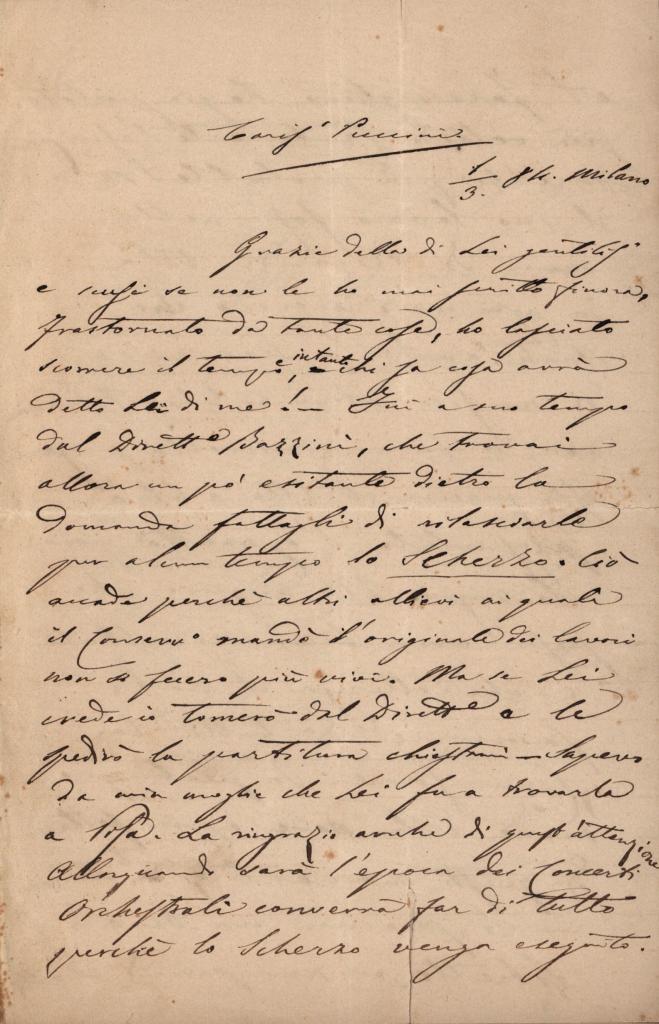 Cariss° Puccini
1/3. 84. Milano
Grazie della di Lei gentiliss°
e scusi se non le ho mai scritto finora,
frastornato da tante cose, ho lasciato
scorrere il tempo, e intanto chi sa cosa avrà
detto Lei di me! — Fui a suo tempo
dal Dirett.e Bazzini, che trovai
allora un pó esitante dietro la
domanda fattagli di rilasciarle
per alcun tempo lo Scherzo. Ciò
accade perchè altri allievi ai quali
il Conserv.o mandò l'originale dei lavori
non si fecero più vivi. Ma se Lei
crede io tornerò dal Dirett.e e le
spedirò la partitura chiestami — Sapevo
da mia moglie che Lei fu a trovarla
a Pisa. La ringrazio anche di quest'attenzione
Allorquando sarà l'epoca dei Concerti
Orchestrali converrà far di tutto
perchè lo Scherzo venga eseguito.